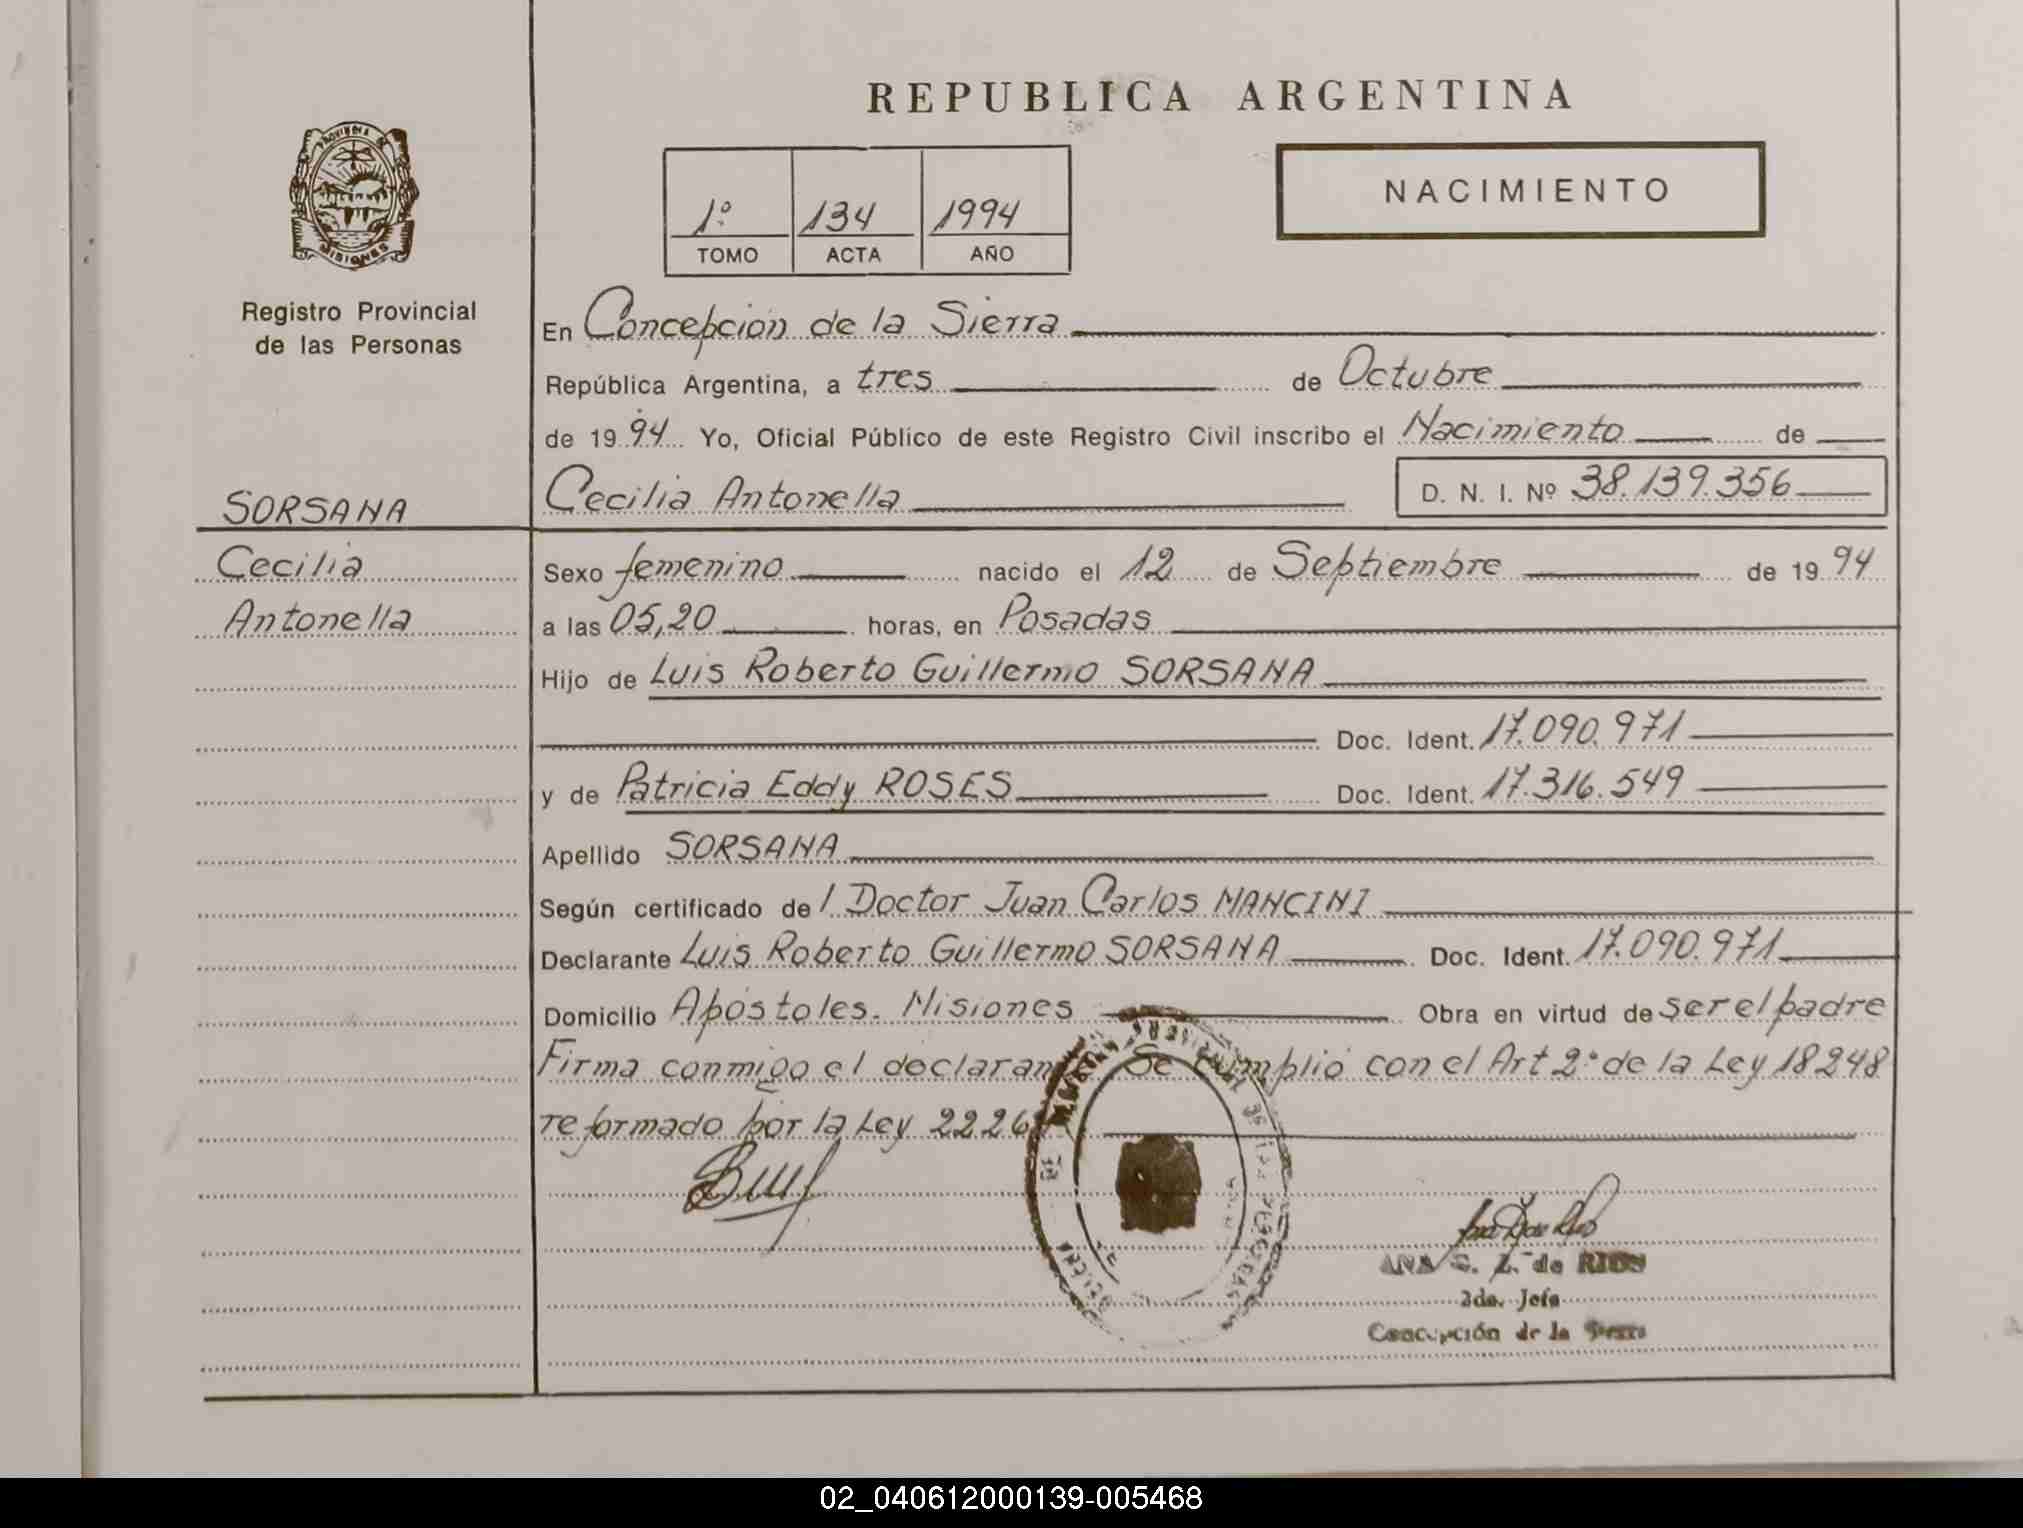 REPUBLICA ARGENTINA
PROVINCIA DE
MISIONES
Registro Provincial
de las Personas
1º 134 1994
TOMO ACTA AÑO
NACIMIENTO
En Concepción de la Sierra
República Argentina, a tres de Octubre
de 19 94 Yo, Oficial Público de este Registro Civil inscribo el Nacimiento de
SORSANA
Cecilia Antonella D. N. I. Nº 38.139.356
Cecilia
Antonella
Sexo femenino nacido el 12 de Septiembre de 19 94
a las 05,20 horas, en Posadas
Hijo de Luis Roberto Guillermo SORSANA
Doc. Ident. 17.090.971
y de Patricia Eddy ROSES Doc. Ident. 17.316.549
Apellido SORSANA
Según certificado de l Doctor Juan Carlos MANCINI
Declarante Luis Roberto Guillermo SORSANA Doc. Ident. 17.090.971
Domicilio Apóstoles. Misiones Obra en virtud de ser el padre
Firma conmigo el declaran Se cumplió con el Art 2º de la Ley 18248
reformado por la Ley 2226
ANA S. Z. de RIOS
2da. Jefa
Concepción de la Sierra
02_040612000139-005468